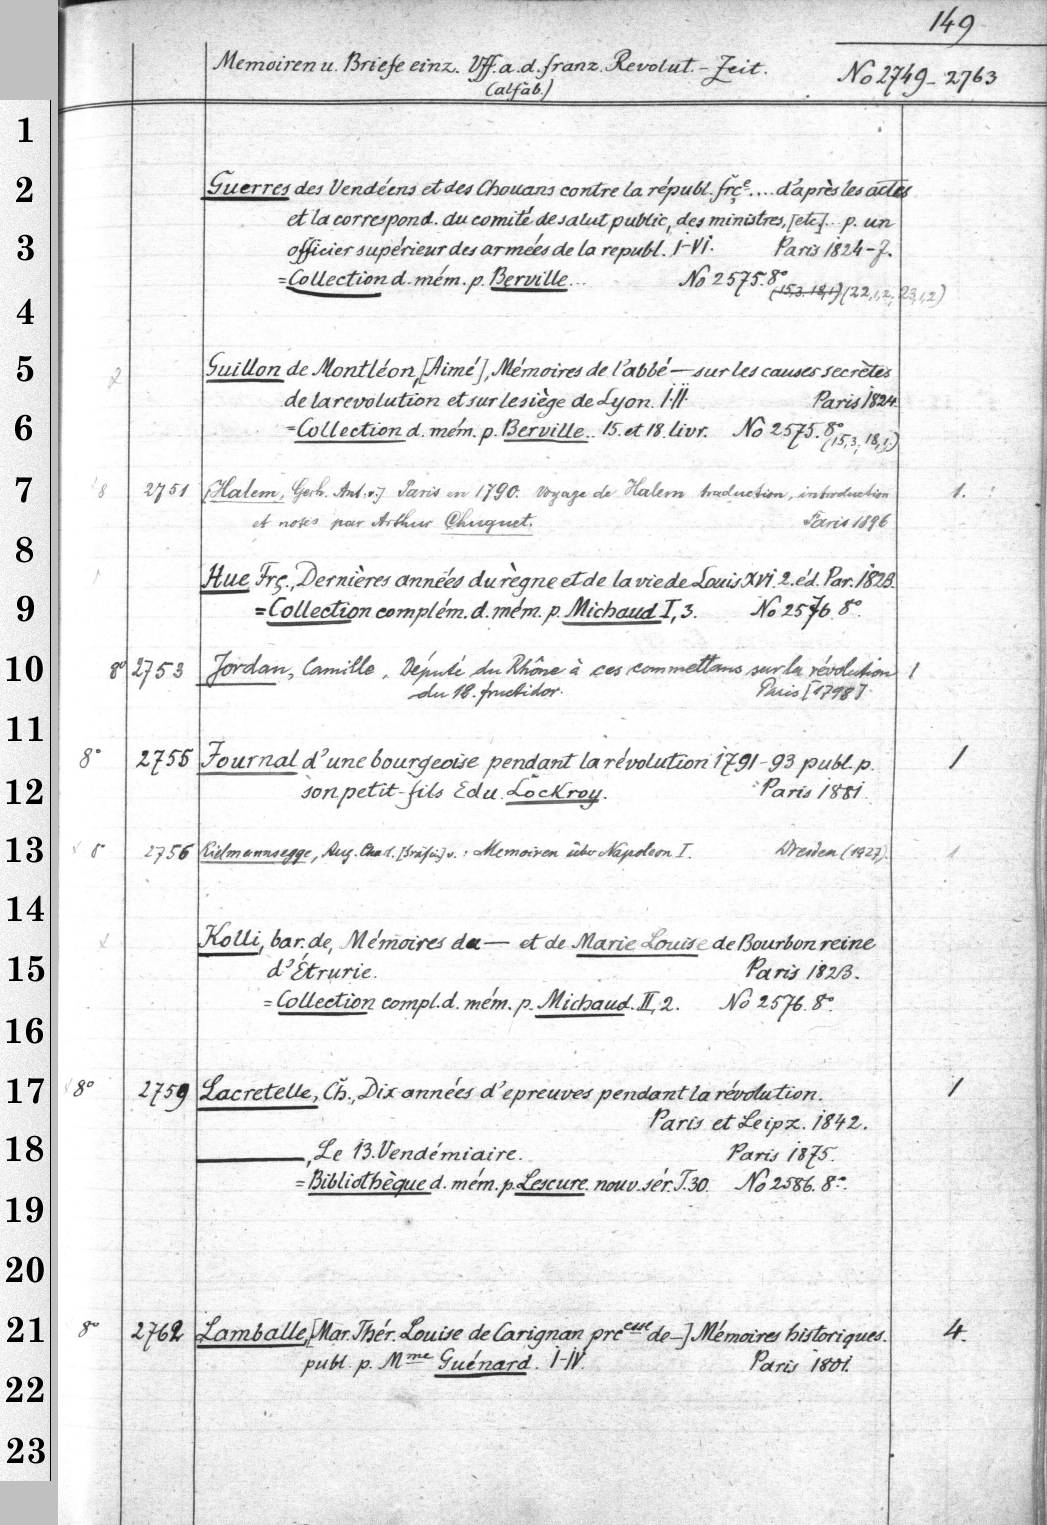 149
Memoiren u. Briefe einz. Vff. a. d. franz. Revolut.-Zeit. No 2749-2763
(alfab.)
1
2 Guerres des Vendéens et des Chouans contre la républ. frçe.... d'après les actes
et la correspond. du comité de salut public, des ministres, [etc]... p. un
3 officier supérieur des armées de la republ. I-VI. Paris 1824-7.
= Collection d. mém. p. Berville... No 2575. 8°
4 (15,3. 18,1) (22,1,2, 23,1,2)
5 Guillon de Montléon, [Aimé], Mémoires de l'abbé — sur les causes secrètes
de la revolution et sur le siège de Lyon. I-II. Paris 1824.
6 = Collection d. mém. p. Berville.. 15. et 18. livr. No 2575. 8°
(15,3, 18,1.)
7 8 2751 [Halem, Gerh. Ant. v.] Paris en 1790. Voyage de Halem traduction, introduction 1.
et notes par Arthur Chuquet. Paris 1896
8
Hue Frç., Dernières années du règne et de la vie de Louis XVI. 2. éd. Par. 1823.
9 = Collection complém. d. mém. p. Michaud I, 3. No 2576. 8°.
10 8° 2753 Jordan, Camille, Député du Rhône à ces commettans sur la révolution 1
du 18. fructidor. Paris [1798]
11
8° 2755 Journal d'une bourgeoise pendant la révolution 1791-93 publ. p. 1
12 son petit-fils Edu. Lockroy. Paris 1881.
13 8° 2756 Kielmannsegge, Aug. Char. [Gräfin] v.: Memoiren über Napoleon I. Dresden (1927). 1
14
Kolli, bar. de, Mémoires de — et de Marie Louise de Bourbon reine
15 d'Étrurie. Paris 1823.
= Collection compl. d. mém. p. Michaud. II, 2. No 2576. 8°.
16
17 8° 2759 Lacretelle, Ch., Dix années d'epreuves pendant la révolution. 1
Paris et Leipz. 1842.
18 ——, Le 13. Vendémiaire. Paris 1875.
= Bibliothèque d. mém. p. Lescure. nouv. sér. T. 30. No 2586. 8°.
19
20
21 8° 2762 Lamballe, [Mar. Thér. Louise de Carignan prcesse de —] Mémoires historiques. 4.
publ. p. Mme Guénard. I-IV. Paris 1801.
22
23